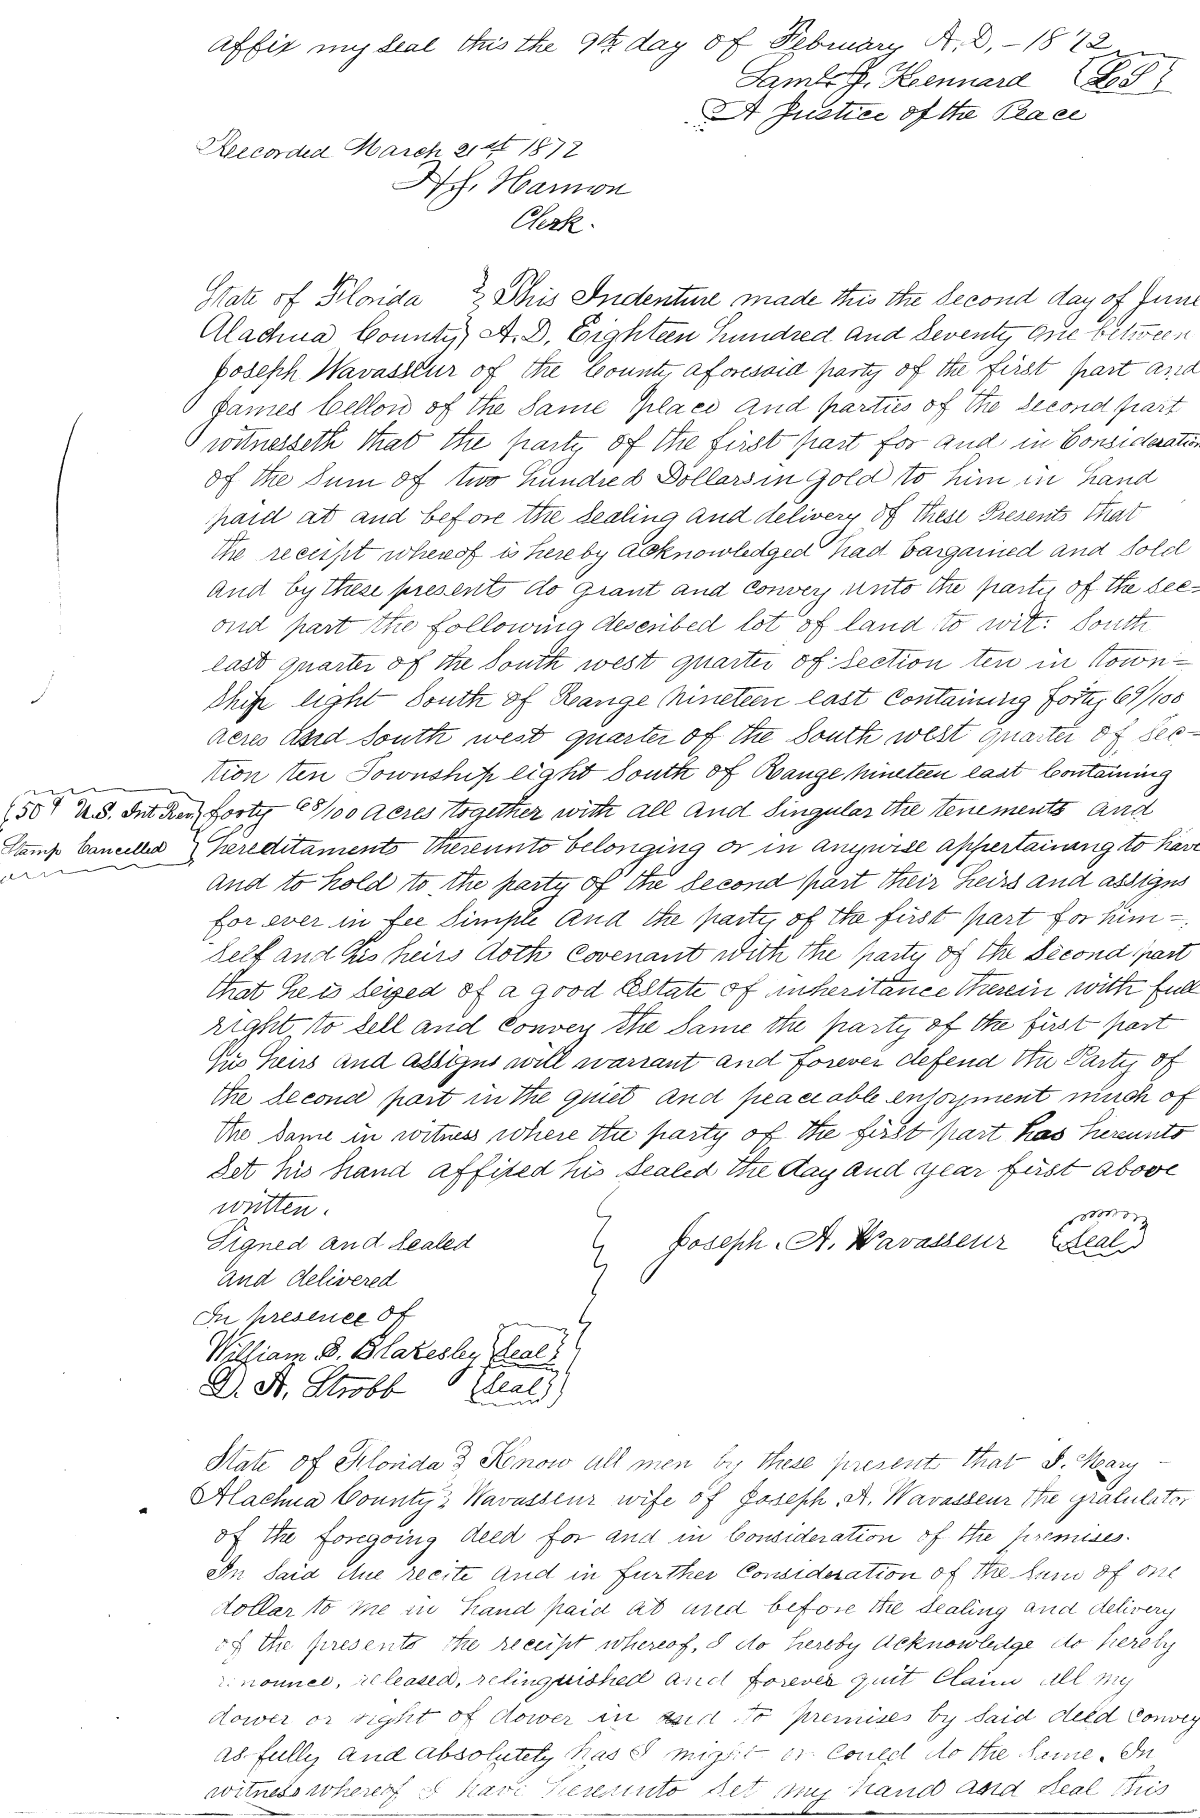 affix my seal this the 9th day of February A.D. - 1872
Saml. J. Kennard (LS)
A Justice of the Peace
Reecorded March 21st 1872
H.S. Harmon
Clerk.
State of Florida } This Indenture made this the second day of June
Alachua County } A.D. Eighteen hundred and seventy one between
Joseph Wavasseur of the County aforesaid party of the first part and
James Cellon of the same place and parties of the second part
witnesseth that the party of the first part for and in Consideration
of the sum of two hundred Dollars in gold to him in hand
paid at and before the sealing and delivery of these Presents that
the receipt whereof is hereby acknowledged had bargained and sold
and by these presents do grant and convey unto the party of the sec=
ond part the following described lot of land to wit: South
east quarter of the South west quarter of section ten in town=
ship eight South of Range nineteen east containing forty 69/100
acres and South west quarter of the South west quarter of Sec=
tion ten Township eight South of Range nineteen east Containing
(50¢ U.S. Int Rev) forty 68/100 acres together with all and singular the tenements and
Stamp Cancelled } hereditaments thereunto belonging or in anywise appertainang to have
and to hold to the party of the second part their heirs and assigns
for ever in fee simple and the party of the first part for him=
self and his heirs doth covenant with the party of the second part
that he is seized of a good Estate of inheritance therein with full
right to sell and convey the same the party of the first part
his heirs and assigns will warrant and forever defend the Party of
the second part in the quiet and peaceable enjoyment much of
the same in witness where the party of the first part has hereunto
set his hand affixed his sealed the day and year first above
written.
Signed and sealed
Joseph. A. Wavasseur (Seal)
and delivered
In presence of
William S. Blakesley (Seal)
D. A. Strobb (Seal)
State of Florida } Know all men by these presents that I. Mary
Alachua County } Wavasseur wife of Joseph. A. Wavasseur the gralulator
of the foregoing deed for and in Consideration of the premises.
In said due recite and in further Consideration of the sum of one
dollar to me in hand paid at and before the sealing and delivery
of the presents the receipt whereof, I do hereby acknowledge do hereby
renounce, released, relinquished and forever quit Claim all my
dower or right of dower in and to premises by said deed convey
as fully and absolutely has I might or could do the same. In
witness whereof I have hereunto set my hand and seal this